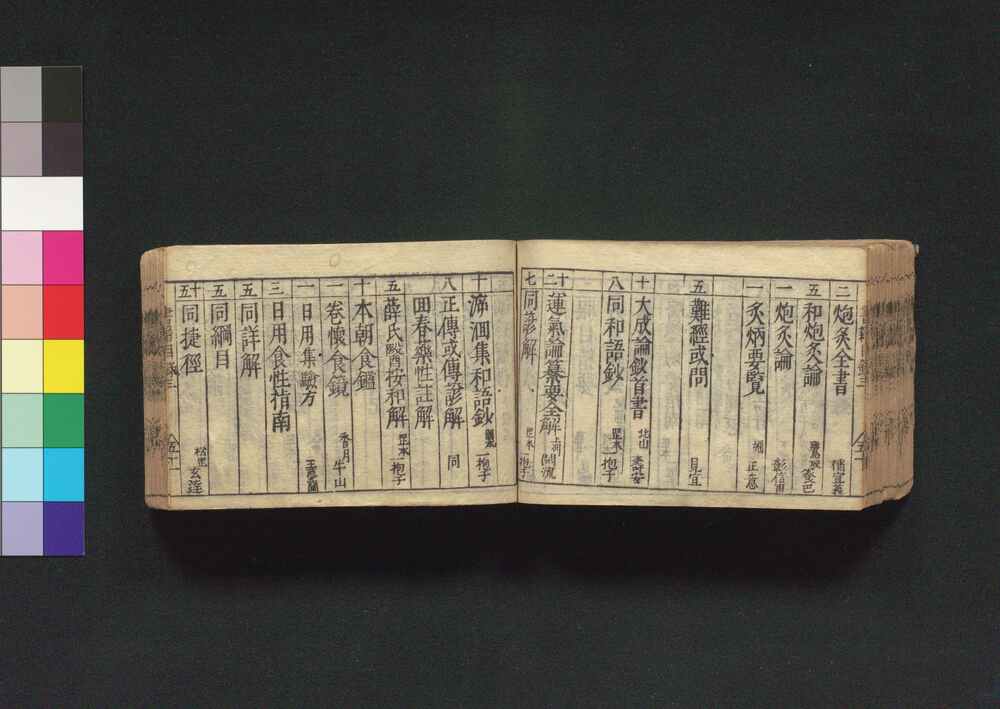 二 炮灸全書
五 和炮灸論 發巴
一 炮灸論 彭信甫
一 灸焫要覧 堀 正意
五 難經或問 見宜
十 大成論鈔首書 北山 壽安
八 同和語鈔 罡本 一抱子
十二 運氣論纂要全解 上河 閑流
七 同諺解 罡本 一抱子
十 㴑洄集和語鈔 罡本 一抱子
八 正傳或傳諺解 同
四 回春藥性註解
五 薛氏醫按和解 罡本 一抱子
十 本朝食鑑
一 巻懷食鏡 香月 牛山
一 日用集験方
三 日用食性指南
五 同詳解
五 同綱目
十五 同捷徑 松平 玄達